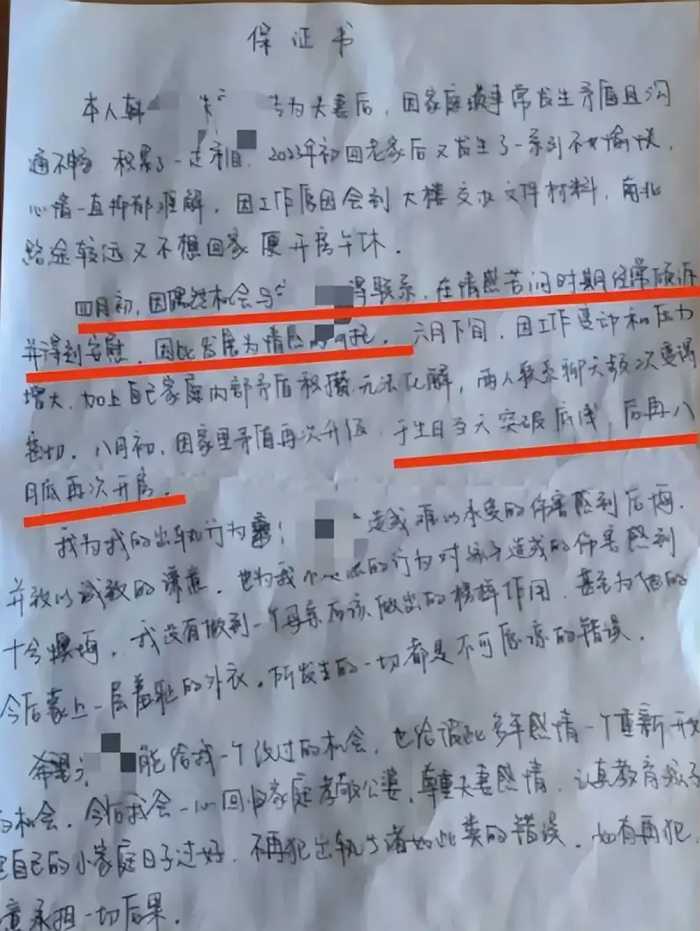 保证书
本人韩 与 为夫妻后，因家庭琐事常发生矛盾且沟
通不畅 积累了一定 2023年初回老家后又发生了一系列不愉快，
心情一直抑郁难解，因工作原因会到大楼交收文件材料，南北
路途较远又不想回家便开房午休．
四月初，因偶然机会与 得联系，在情感苦闷时期经常倾诉
并得到安慰，因此发展为情感 六月下旬，因工作变动和压力
增大，加上自己家庭内部矛盾积攒无法化解，两人联系聊天频次变得
密切．八月初，因家里矛盾再次升级，于生日当天突破底线，后再八
月底再次开房．
我为我的出轨行为 造成难以承受的伤害感到后悔，
并致以诚致的 也为我 的行为对孩子造成的伤害感到
十分懊悔，我没有做到一个母亲应该做出的榜样作用，甚至为他的
今后蒙上一层羞耻的外衣，所发生的一切都是不可原谅的错误．
希望 能给我一个改过的机会，也给彼此多年感情一个重新开
的机会，今后我会一心回归家庭孝敬公婆，尊重夫妻感情，认真教育孩子
自己的小家庭日子过好，不再犯出轨等诸如此类的错误，如有再犯，
意承担一切后果．